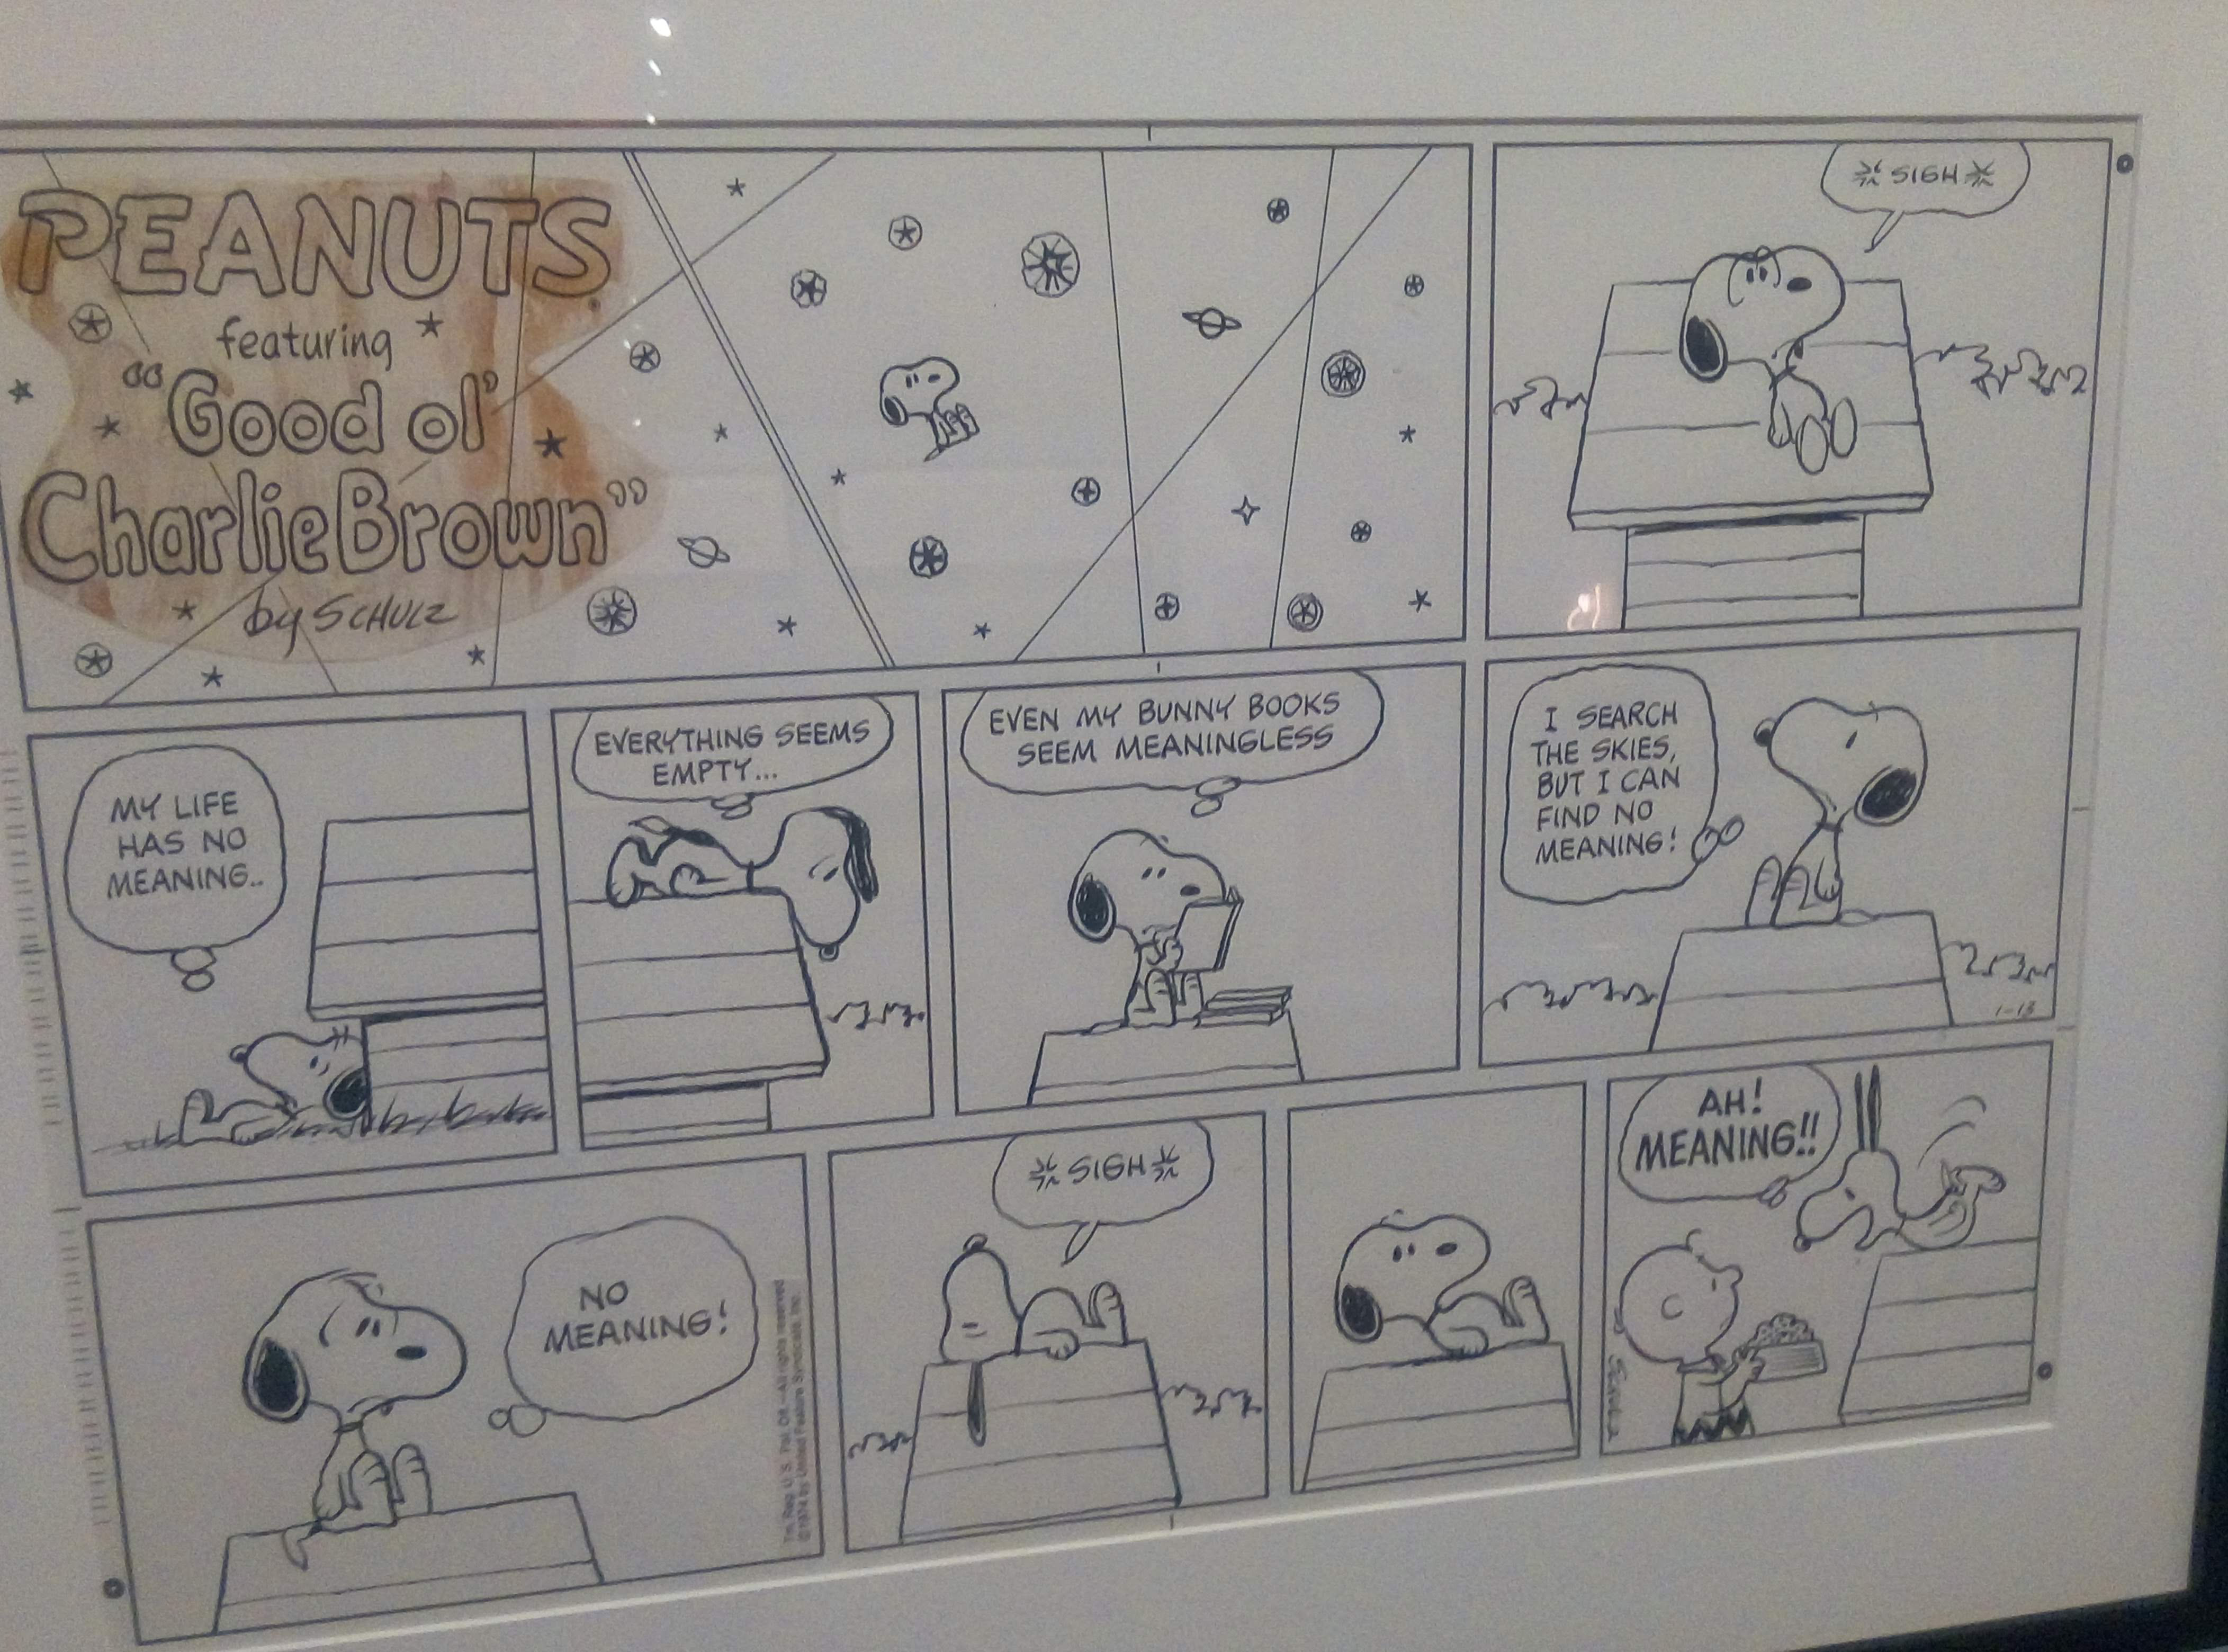 PEANUTS®
featuring
"Good ol'
Charlie Brown"
by SCHULZ
*SIGH*
MY LIFE
HAS NO
MEANING..
EVERYTHING SEEMS
EMPTY...
EVEN MY BUNNY BOOKS
SEEM MEANINGLESS
I SEARCH
THE SKIES,
BUT I CAN
FIND NO
MEANING!
1-13
NO
MEANING!
Tm. Reg. U. S. Pat. Off.—All rights reserved
©1974 by United Feature Syndicate, Inc.
*SIGH*
AH!
MEANING!!
SCHULZ